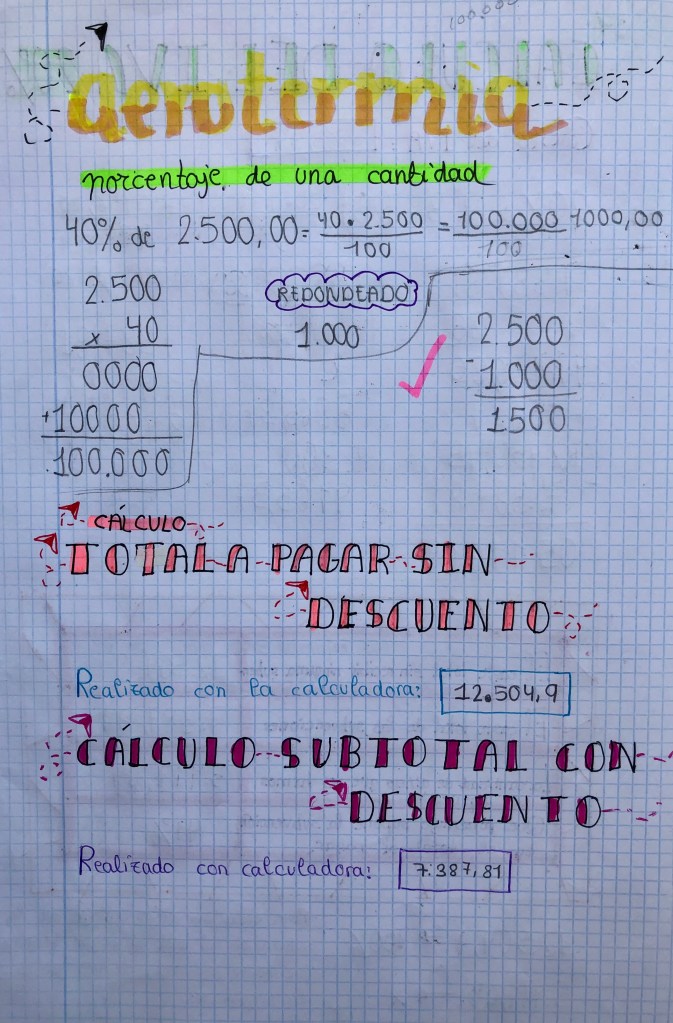 100.000
aerotermia
porcentaje de una cantidad
40% de 2.500,00 = 40 • 2.500 / 100 = 100.000 / 100 1000,00
2.500
x 40
0000
+10000
100.000
REDONDEADO
1.000
2.500
- 1.000
1500
CÁLCULO
TOTAL A PAGAR SIN
DESCUENTO
Realizado con la calculadora: 12.504,9
CÁLCULO SUBTOTAL CON
DESCUENTO
Realizado con calculadora: 7.387,81